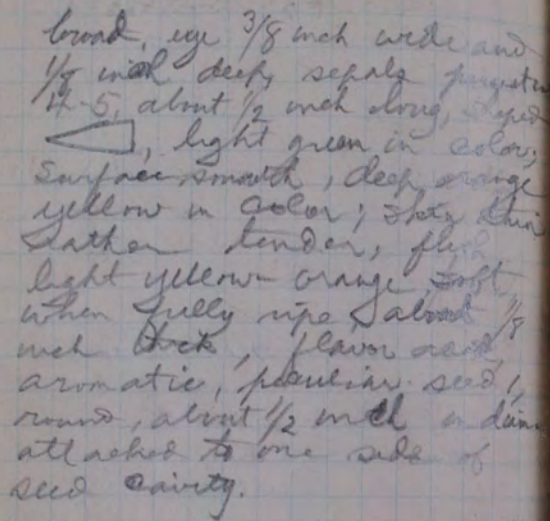 broad, eye 3/8 inch wide and
1/8 inch deep, sepals
4-5, about 1/2 inch long, shaped
, light green in color;
Surface smooth, deep orange
yellow in color; skin thin
rather tender; flesh
light yellow orange, soft
when fully ripe, about 1/8
inch thick, flavor acid,
aromatic, peculiar. seed 1,
round, about 1/2 inch in diam
attached to one side of
seed cavity.